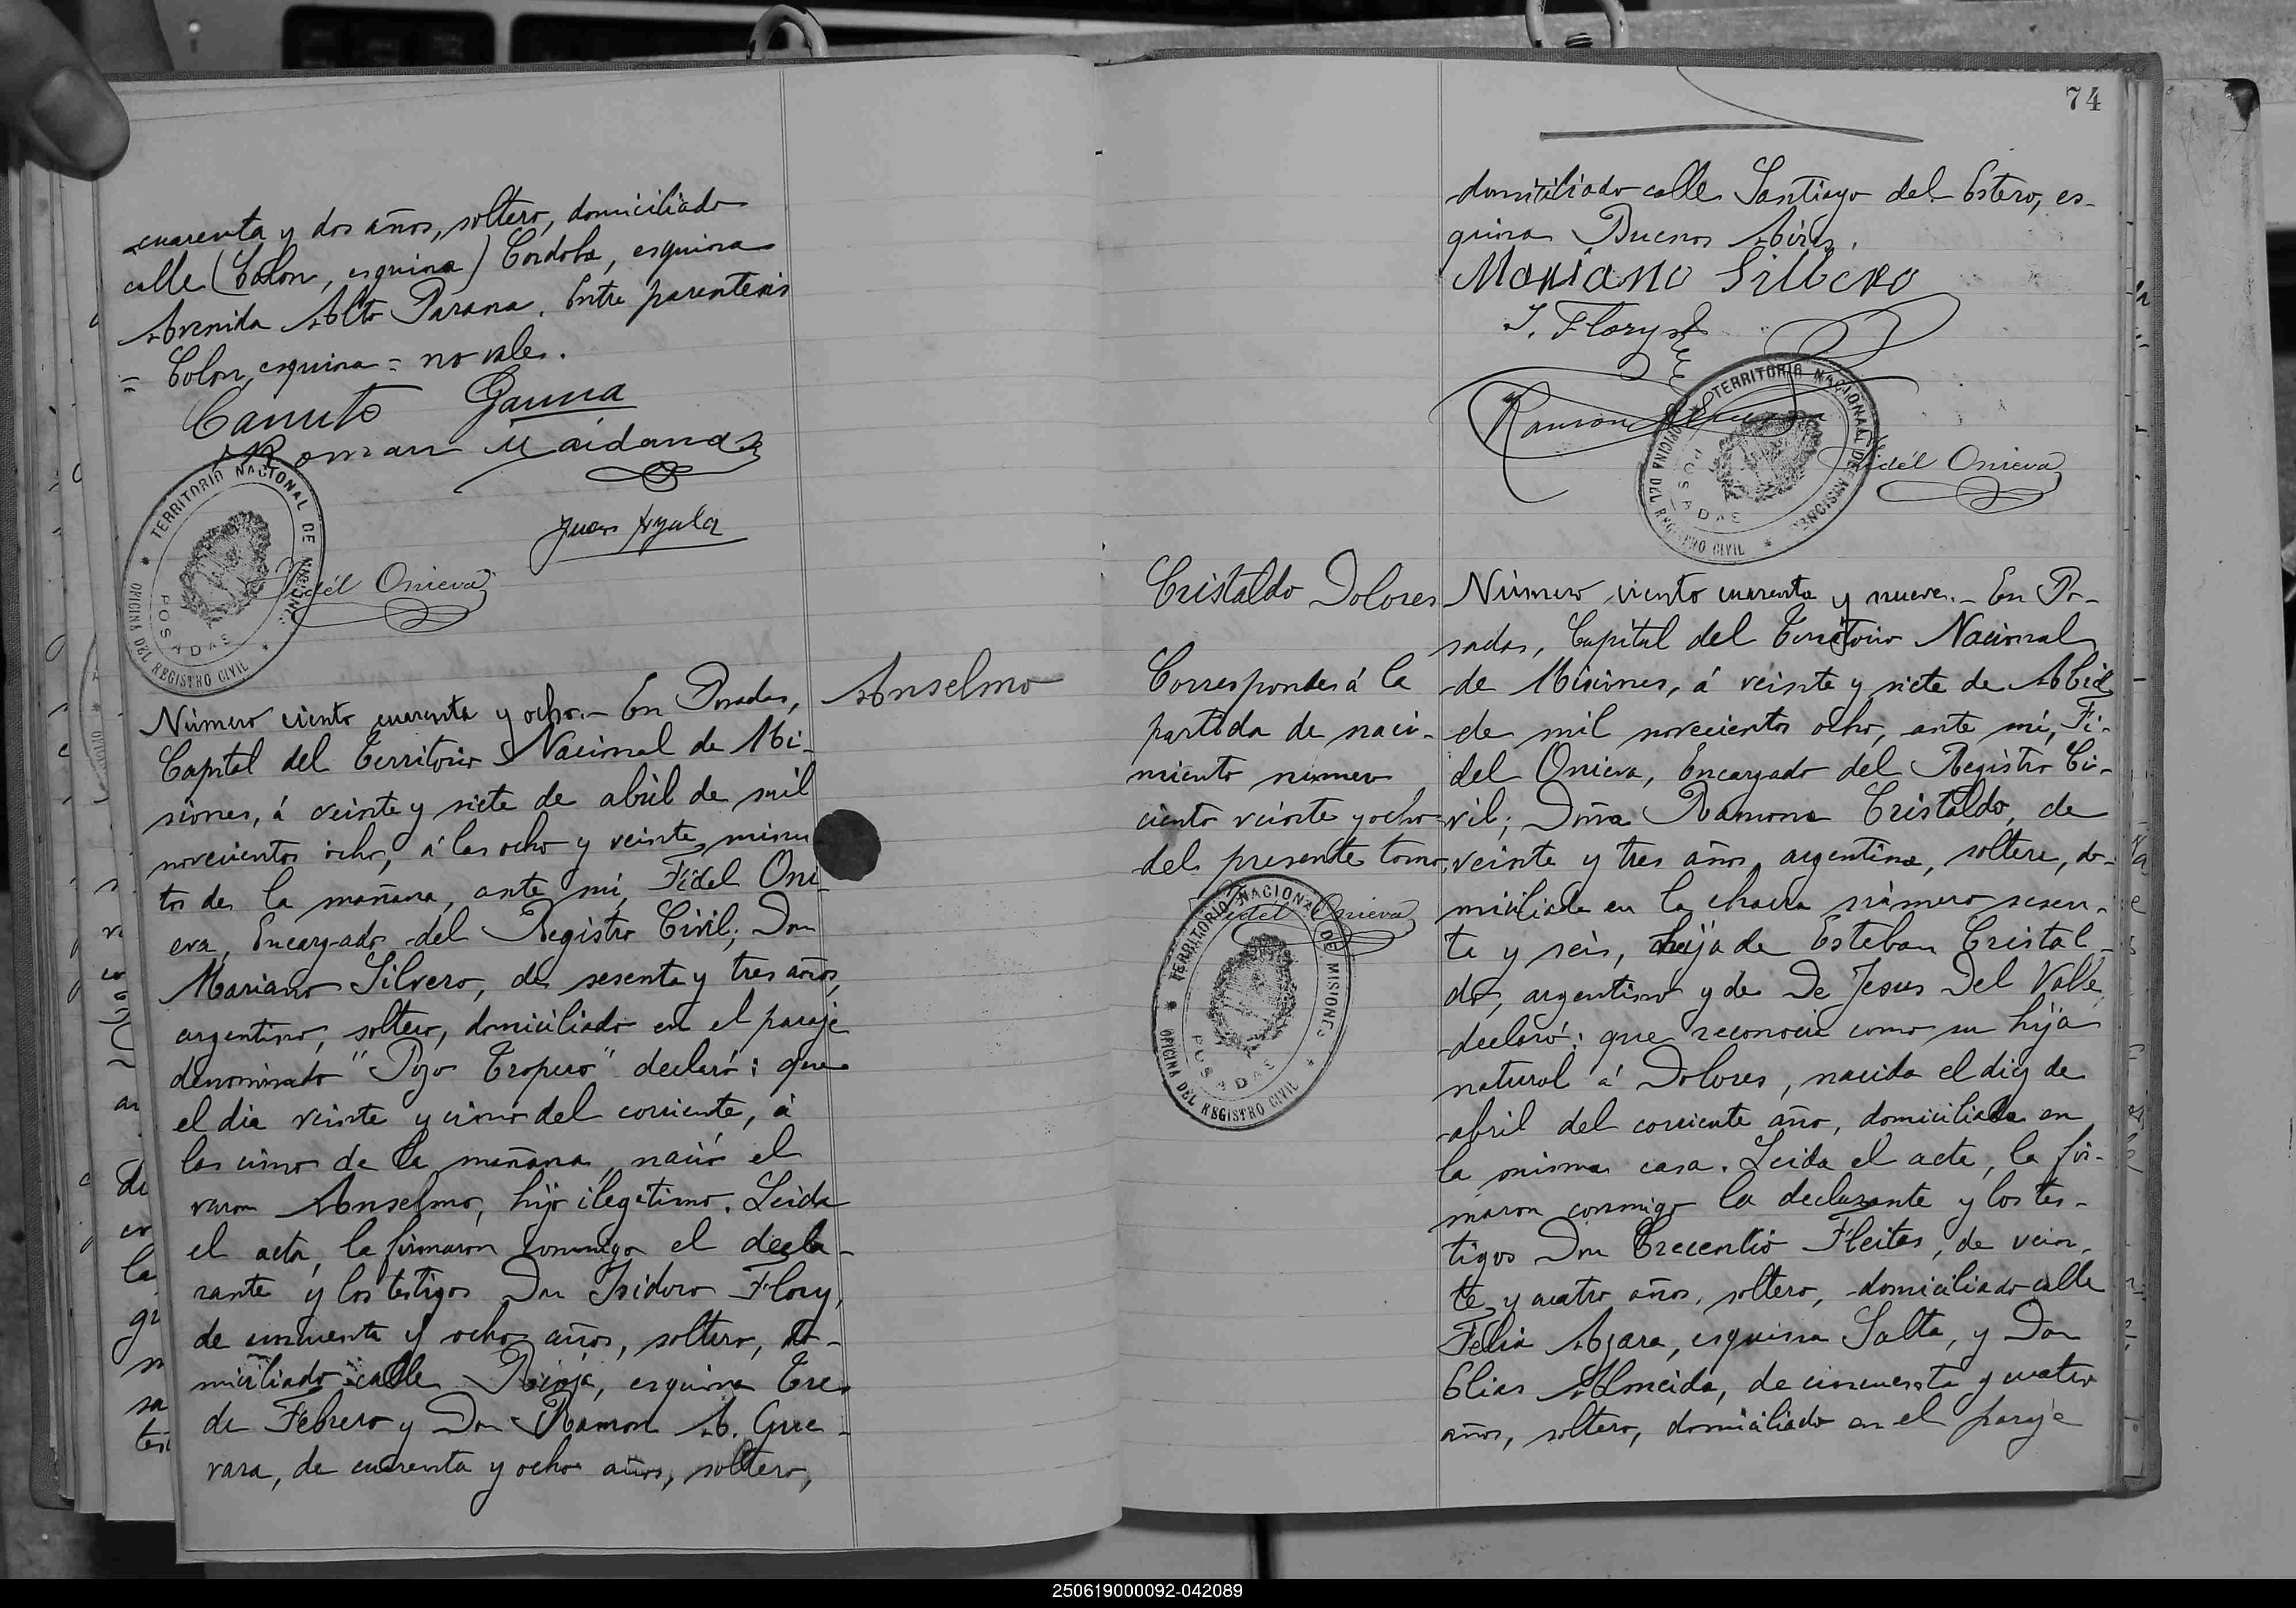 cuarenta y dos años, soltero, domiciliado
calle (Colon, esquina) Cordoba, esquina
Avenida Alto Parana. Entre parentesis
= Colon, esquina = no vale.
Canuto Gauna
Roman Maidana
Juan Ayala
Fidél Onieva
TERRITORIO NACIONAL DE MISIONES
POSADAS
OFICINA DEL REGISTRO CIVIL
Anselmo
Número ciento cuarenta y ocho.- En Posadas,
Capital del Territorio Nacional de Mi-
siones, á veinte y siete de abril de mil
novecientos ocho, á las ocho y veinte minu
tos de la mañana, ante mí, Fidel Oni
eva, Encargado del Registro Civil; Don
Mariano Silvero, de sesenta y tres años,
argentino, soltero, domiciliado en el paraje
denominado "Pozo Tropero" declaró: que
el dia veinte y cinco del corriente, á
las cinco de la mañana, nació el
varon Anselmo, hijo ilegetimo. Leida
el acta, la firmaron conmigo el decla-
rante y los testigos Don Isidoro Flory,
de cincuenta y ocho años, soltero, do-
miciliado calle Rioja, esquina Tres
de Febrero y Don Ramon A. Gue-
vara, de cuarenta y ocho años, soltero,
74
domiciliado calle Santiago del Estero, es-
quina Buenos Aires.
Mariano Silbero
I. Flory
Ramon
Fidél Onieva
TERRITORIO NACIONAL DE MISIONES
POSADAS
OFICINA DEL REGISTRO CIVIL
Cristaldo Dolores
Corresponde á la
partida de naci-
miento número
ciento veinte y ocho
del presente tomo
Fidel Onieva
TERRITORIO NACIONAL DE MISIONES
POSADAS
OFICINA DEL REGISTRO CIVIL
Número ciento cuarenta y nueve.- En Po-
sadas, Capital del Territorio Nacional
de Misiones, á veinte y siete de Abril
de mil novecientos ocho, ante mí, Fi-
del Onieva, Encargado del Registro Ci-
vil; Doña Ramona Cristaldo, de
veinte y tres años, argentina, soltera, do-
miciliada en la chacra número sesen-
ta y seis, hija de Esteban Cristal-
do, argentino y de De Jesus Del Valle,
declaró: que reconocia como su hija
natural á Dolores, nacida el diez de
abril del corriente año, domiciliada en
la misma casa. Leida el acta, la fir-
maron conmigo la declarante y los tes-
tigos Don Crecencio Fleitas, de vein-
te y cuatro años, soltero, domiciliado calle
Felix Azara, esquina Salta, y Don
Elias Almeida, de cincuenta y cuatro
años, soltero, domiciliado en el paraje
250619000092-042089